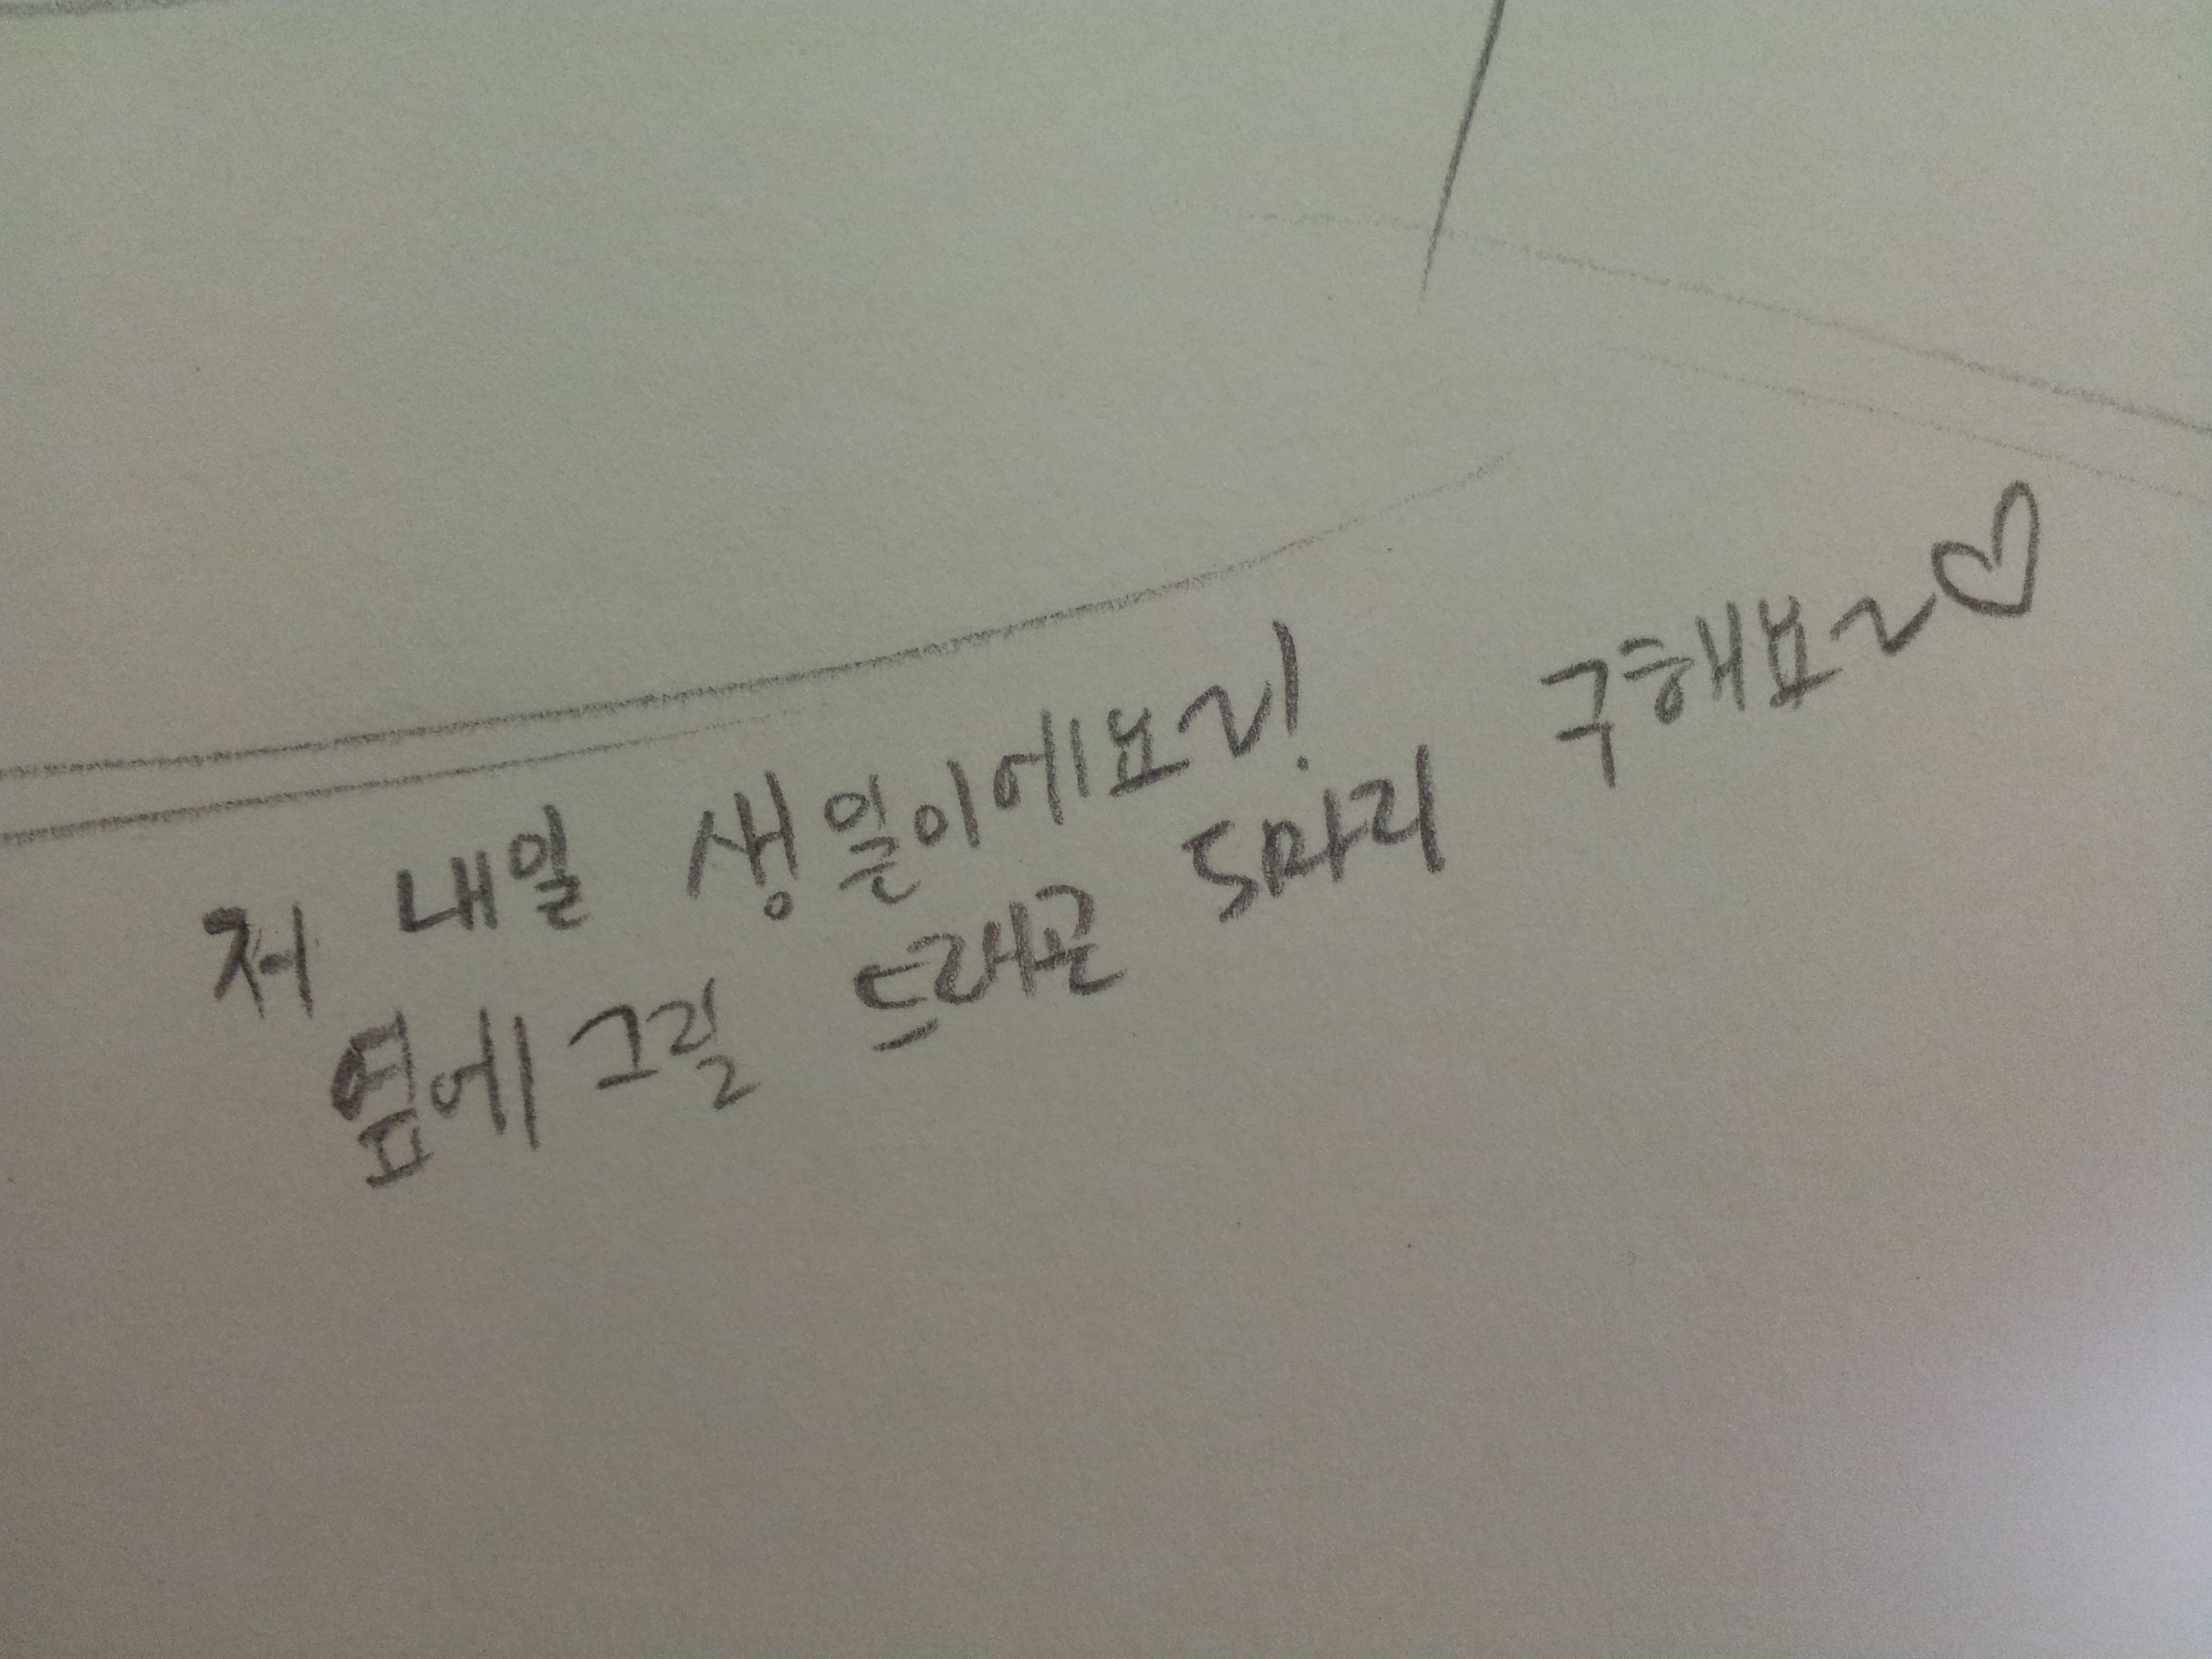 저 내일 생일이에요~!
옆에 그릴 드래곤 5마리 구해요~♡